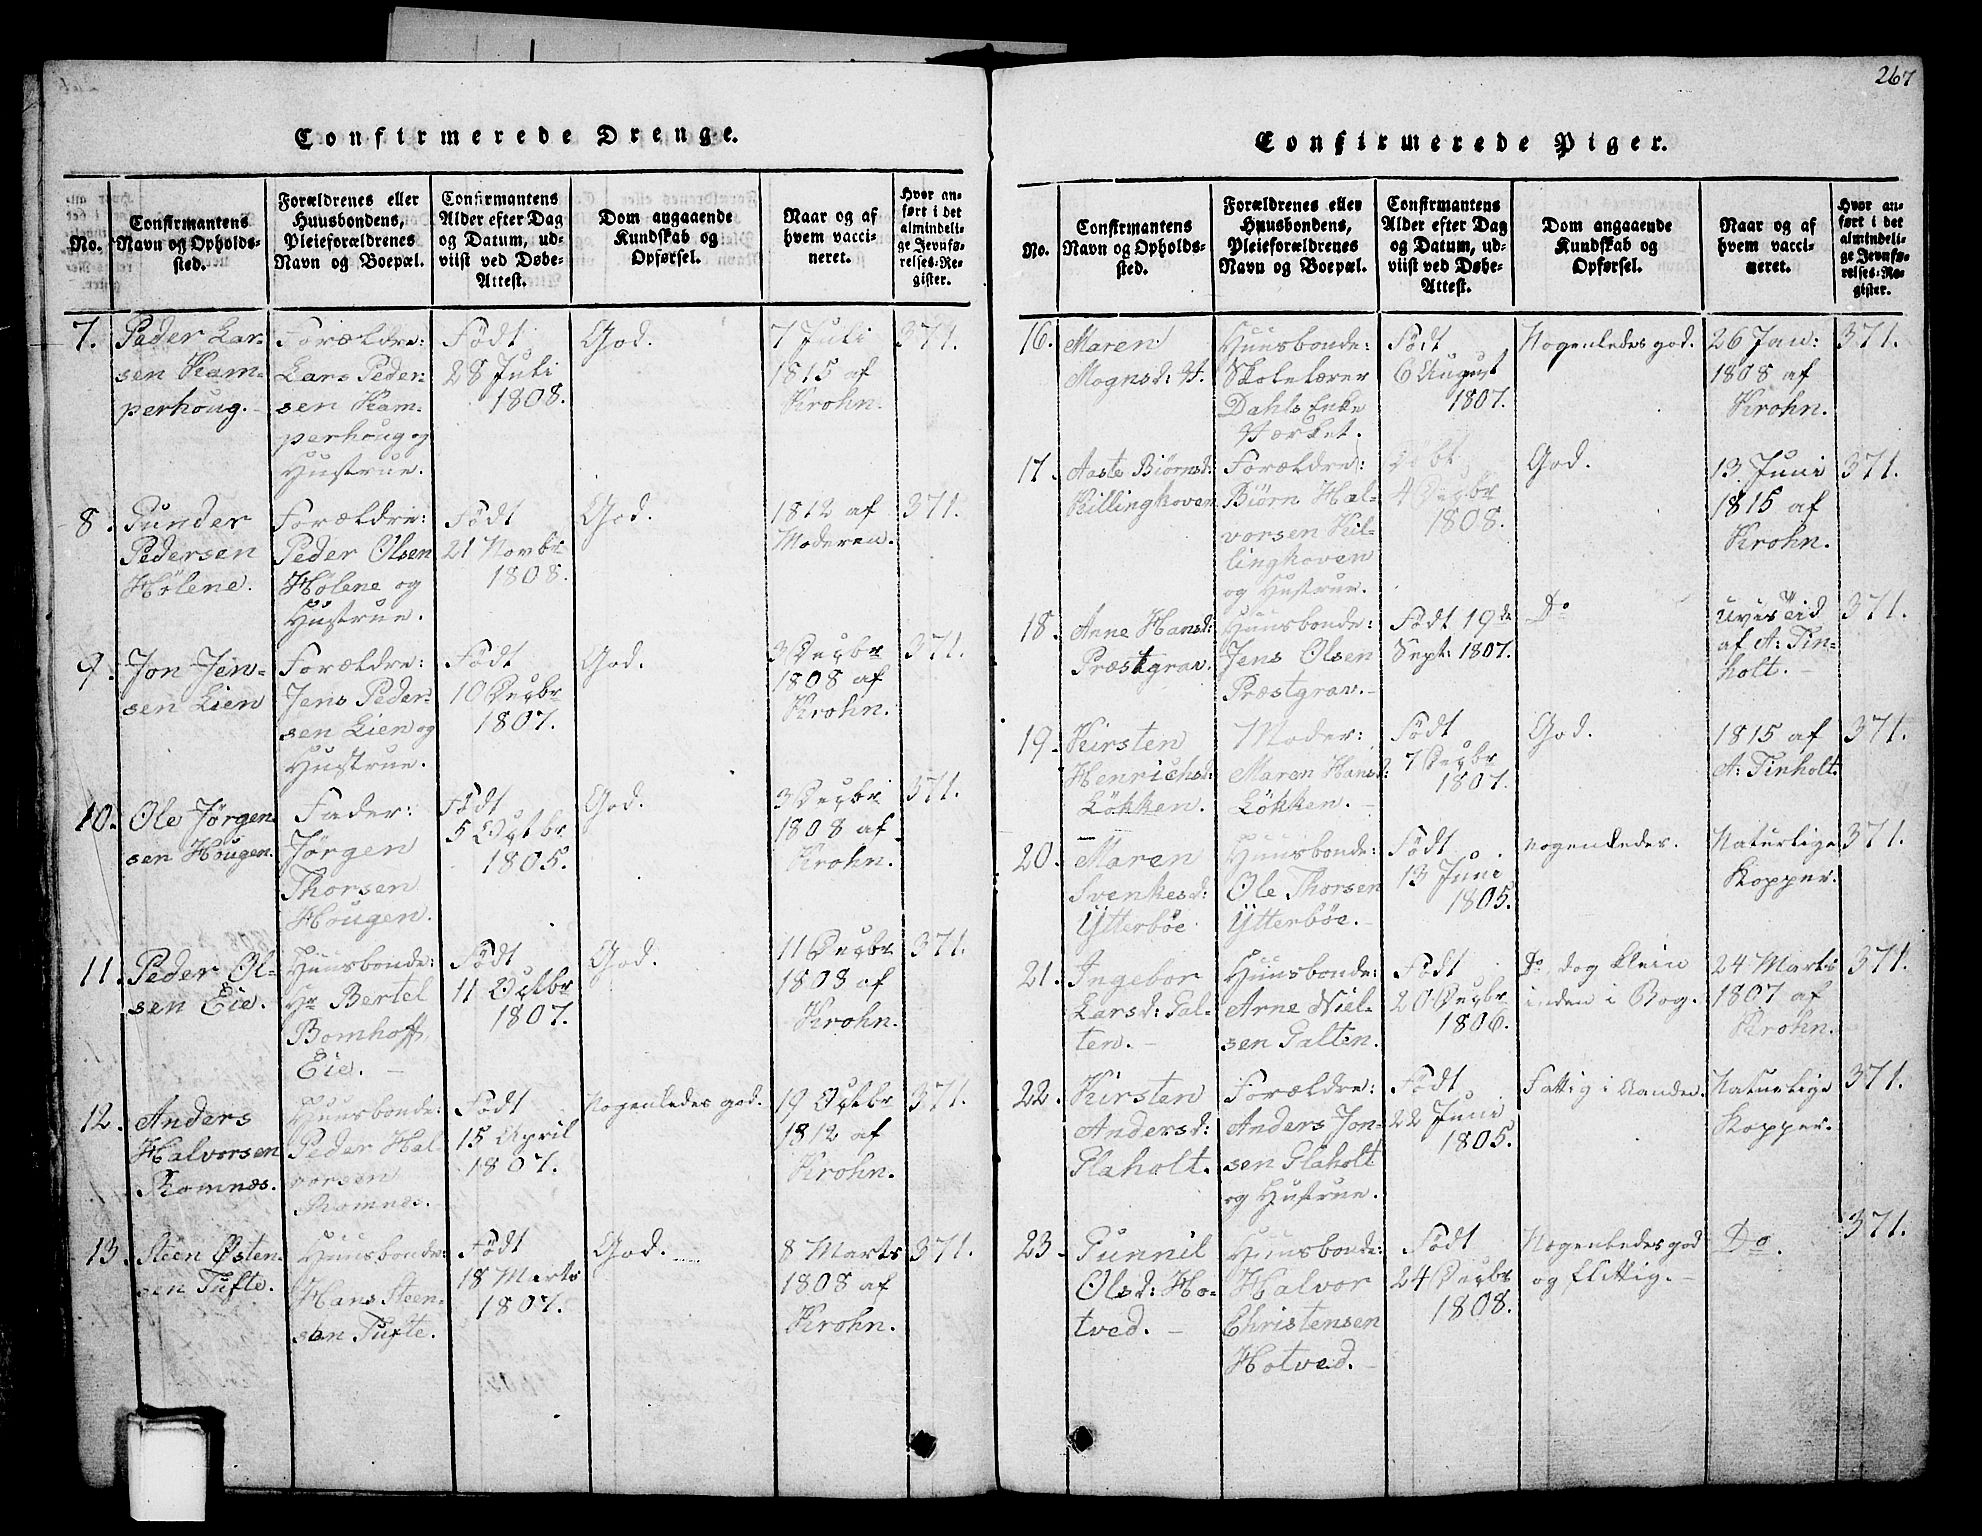 267
Confirmerede Drenge.
No.
Confirmantens
Navn og Opholds-
sted.
Forældrenes eller
Huusbondens,
Pleieforældrenes
Navn og Boepæl.
Confirmantens
Alder efter Dag
og Datum, ud-
viist ved Døbe-
Attest.
Dom angaaende
Kundskab og
Opførsel.
Naar og af
hvem vacci-
neret.
Hvor an-
ført i det
almindeli-
ge Jevnfø-
relses-Re-
gister.
7.
Peder Lar-
sen Kam-
perhoug.
Forældre:
Lars Peder-
sen Kam-
perhoug og
Hustrue.
Født
28 Juli
1808.
God.
7 Juli
1815 af
Krohn.
371.
8.
Gunder
Pedersen
Hølene.
Forældre:
Peder Olsen
Hølene og
Hustrue.
Født
21 Novbr
1808.
God.
1812 af
Moderen.
371.
9.
Jon Jen-
sen Lien
Forældre:
Jens Peder-
sen Lien og
Hustrue.
Født
10 Decbr
1807.
God.
3 Decbr
1808 af
Krohn.
371.
10.
Ole Jørgen-
sen Hougen.
Fader:
Jørgen
Thorsen
Hougen.
Født
5 Octbr
1805.
God.
3 Decbr
1808 af
Krohn.
371.
11.
Peder Ol-
sen Eie.
Huusbonde:
Hr Bertel
Bomhoff,
Eie.
Født
11 Octbr
1807.
God.
11 Decbr
1808 af
Krohn.
371.
12.
Anders
Halvorsen
Romnæs.
Huusbonde:
Peder Hal-
vorsen
Romnæs.
Født
15 April
1807.
Nogenledes god.
19 Octbr
1812 af
Krohn.
371.
13.
Steen Østen-
sen Tufte.
Huusbonde:
Hans Steen-
sen Tufte.
Født
18 Marts
1807.
God.
8 Marts
1808 af
Krohn.
371.
Confirmerede Piger.
No.
Confirmantens
Navn og Opholds-
sted.
Forældrenes eller
Huusbondens,
Pleieforældrenes
Navn og Boepæl.
Confirmantens
Alder efter Dag
og Datum, ud-
viist ved Døbe-
Attest.
Dom angaaende
Kundskab og
Opførsel.
Naar og af
hvem vacci-
neret.
Hvor an-
ført i det
almindeli-
ge Jevnfø-
relses-Re-
gister.
16.
Maren
Mognsd: V.
Huusbonde:
Skolelærer
Dahls Enke
Værket.
Født
6 August
1807.
Nogenledes god.
26 Jan:
1808 af
Krohn.
371.
17.
Aaste Biørnsd:
Killinghoven
Forældre:
Biørn Hal-
vorsen Kil-
linghoven
og Hustrue.
Døbt
4 Decbr
1808.
God.
13 Juni
1815 af
Krohn.
371.
18.
Anne Hansd:
Præstgrav.
Huusbonde:
Jens Olsen
Præstgrav.
Født 19de
Sept: 1807.
Do
uvis Tid
af A: Tin-
holt.
371.
19.
Kirsten
Henrichsd:
Løkken.
Moder:
Maren Hansd:
Løkken.
Født
7 Decbr
1807.
God.
1815 af
A: Tinholt.
371.
20.
Maren
Svenkesd:
Ytterbøe
Huusbonde:
Ole Thorsen
Ytterbøe.
Født
13 Juni
1805.
nogenledes.
Naturlige
Kopper.
371.
21.
Ingebor
Larsd: Gal-
ten.
Huusbonde:
Arne Niel-
sen Galten.
Født
20 Decbr
1806.
Do dog klein
inden i Bog.
24 Marts
1807 af
Krohn.
371.
22.
Kirsten
Andersd:
Glaholt.
Forældre:
Anders Jon-
sen Glaholt
og Hustrue.
Født
22 Juni
1805.
Fattig i Aanden.
Naturlige
Kopper.
371.
23.
Gunnil
Olsd: Ho-
tved.
Huusbonde:
Halvor
Christensen
Hotved.
Født
24 Decbr
1808.
Nogenledes god
og flittig.
Do.
371.